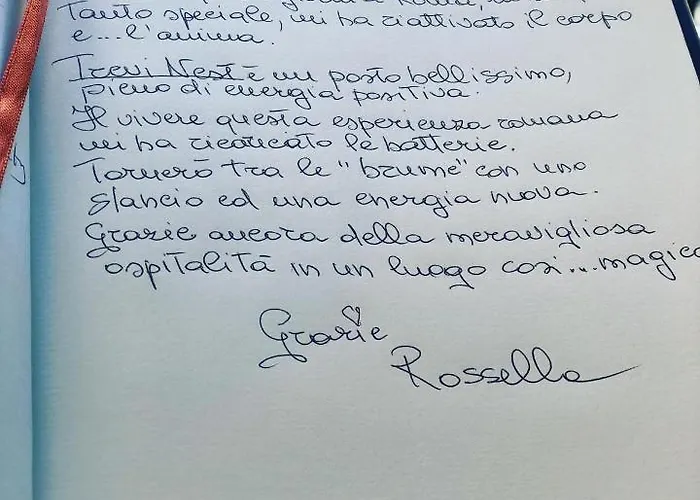 Tanto speciale, mi ha riattivato il corpo
e...l'anima.
Trevi Nest è un posto bellissimo,
pieno di energia positiva.
Il vivere questa esperienza romana
mi ha ricaricato le batterie.
Tornerò tra le "brume" con uno
slancio ed una energia nuova.
Grazie ancora della meravigliosa
ospitalità in un luogo così...magico
Grazie
Rossella